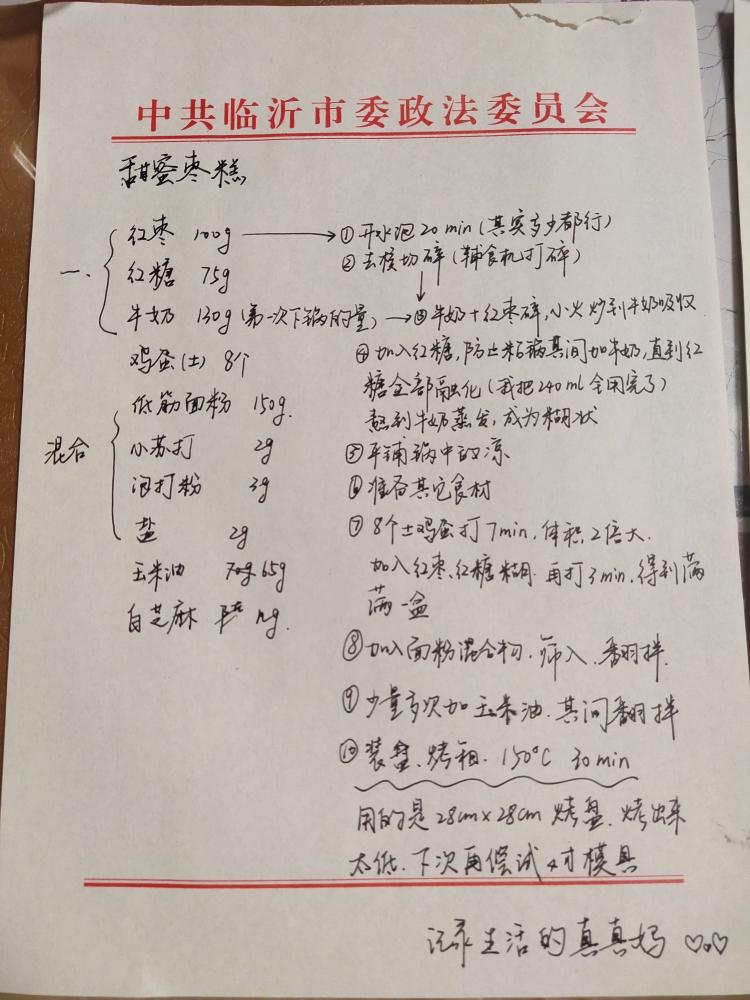 中共临沂市委政法委员会
甜蜜枣糕
一、
红枣 100g
红糖 75g
牛奶 130g(第一次下锅的量)
鸡蛋(土) 8个
混合
低筋面粉 150g.
小苏打 2g
泡打粉 3g
盐 2g
玉米油 65g
白芝麻
①开水泡20min(其实多少都行)
②去核切碎(辅食机打碎)
③牛奶+红枣碎,小火炒到牛奶吸收
④加入红糖,防止粘锅其间加牛奶,直到红
糖全部融化(我把240ml全用完了)
熬到牛奶蒸发,成为糊状
⑤平铺锅中放凉
⑥准备其它食材
⑦8个土鸡蛋打7min,体积2倍大.
加入红枣、红糖糊.再打3min,得到满
满一盆
⑧加入面粉混合物.筛入.翻拌.
⑨少量多次加玉米油.其间翻拌
⑩装盘、烤箱.150°C 30min
用的是28cm×28cm烤盘.烤出来
太低.下次再偿试4寸模具
记录生活的真真妈 ♡.♡